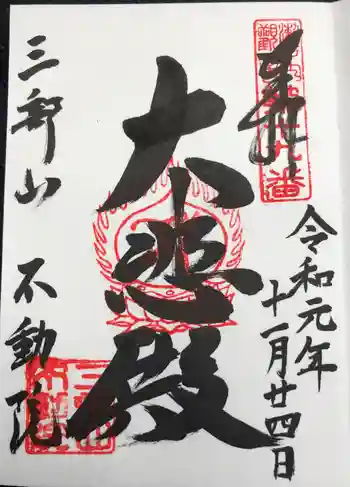 奉拝
令和元年
十一月廿四日
大悲殿
三郷山 不動院